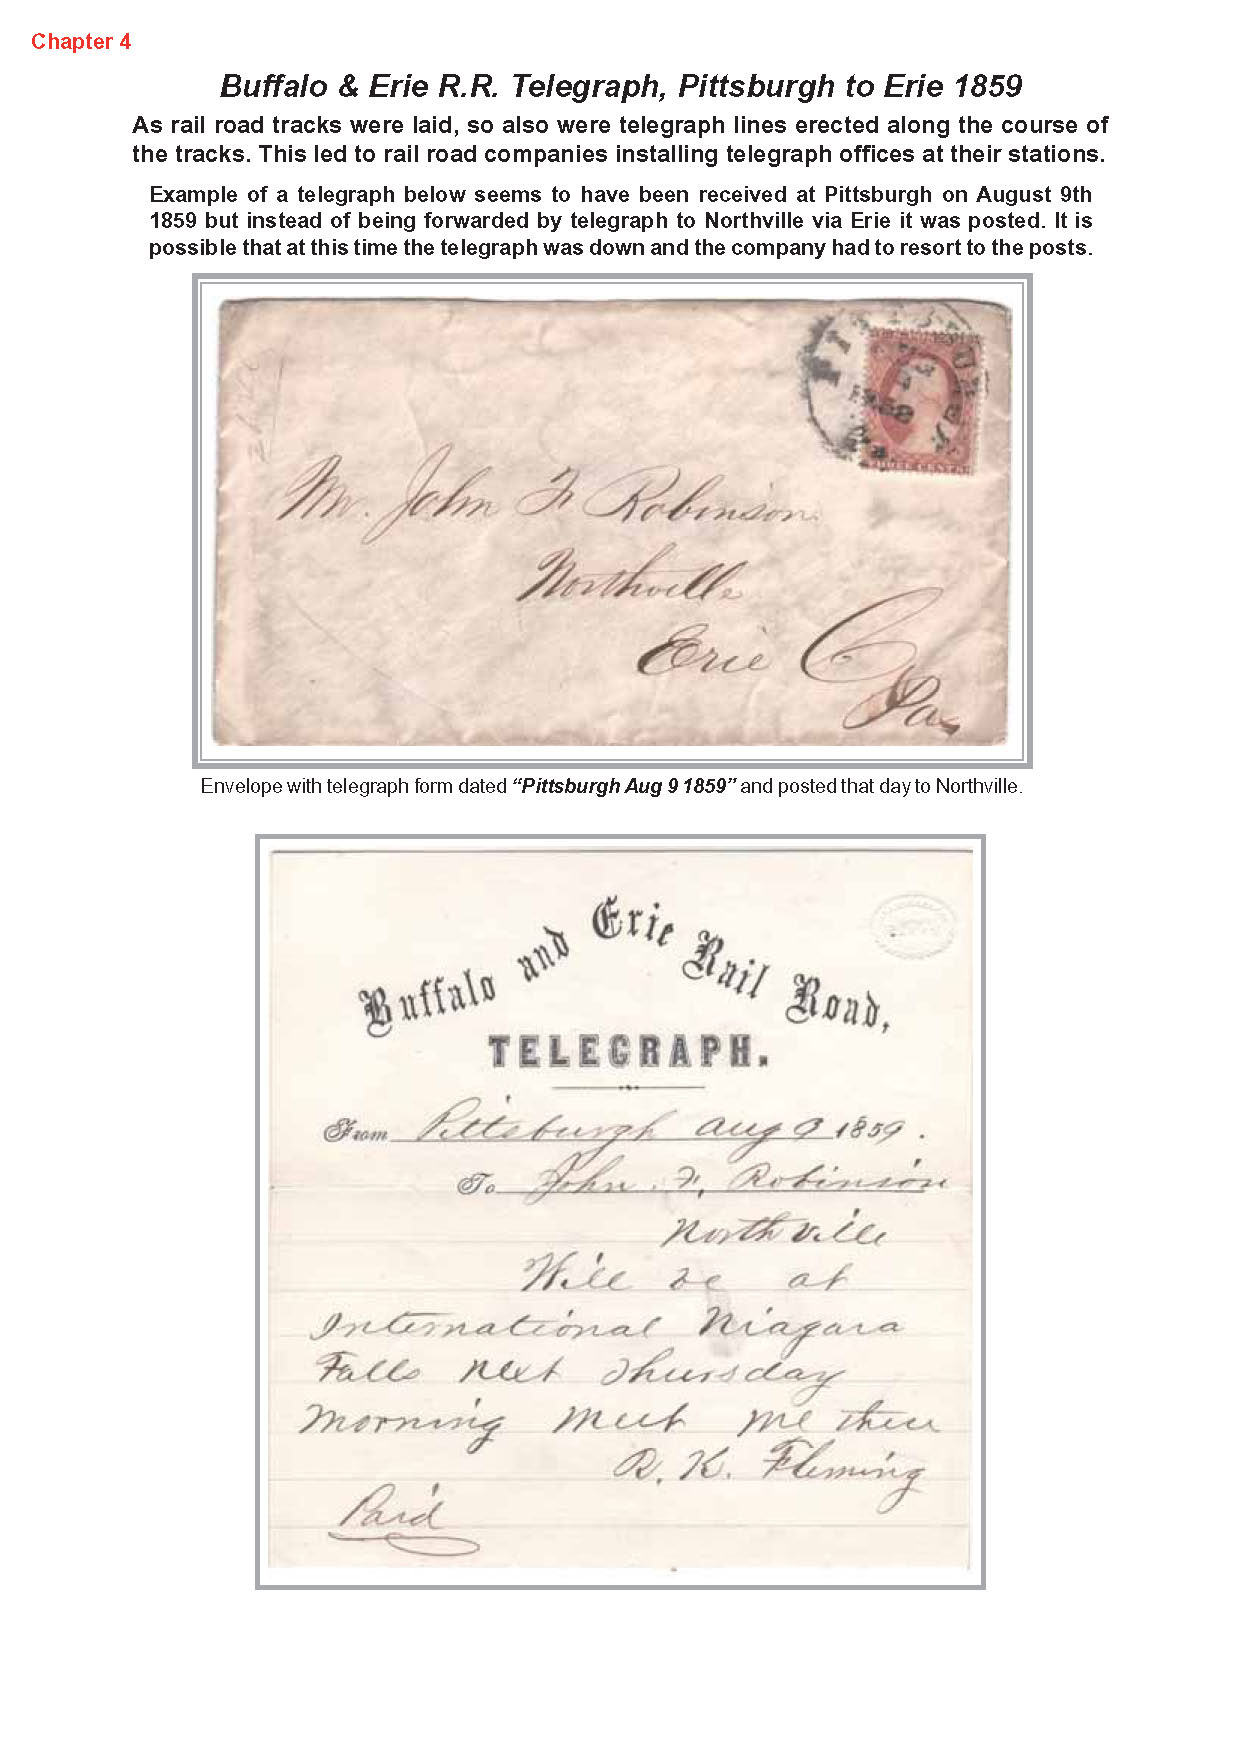 Chapter 4
Buffalo & Erie R.R. Telegraph, Pittsburgh to Erie 1859
As rail road tracks were laid, so also were telegraph lines erected along the course of
the tracks. This led to rail road companies installing telegraph offices at their stations.
Example of a telegraph below seems to have been received at Pittsburgh on August 9th
1859 but instead of being forwarded by telegraph to Northville via Erie it was posted. It is
possible that at this time the telegraph was down and the company had to resort to the posts.
THREE CENTS
Mr. John F Robinson
Northville
Erie Co
Pa
Envelope with telegraph form dated “Pittsburgh Aug 9 1859” and posted that day to Northville.
Buffalo and Erie Rail Road,
TELEGRAPH.
From Pittsburgh Aug 9 1859.
To John F. Robinson
Northville
Will be at
International Niagara
Falls next Thursday
Morning Meet me there
R. K. Fleming
Paid